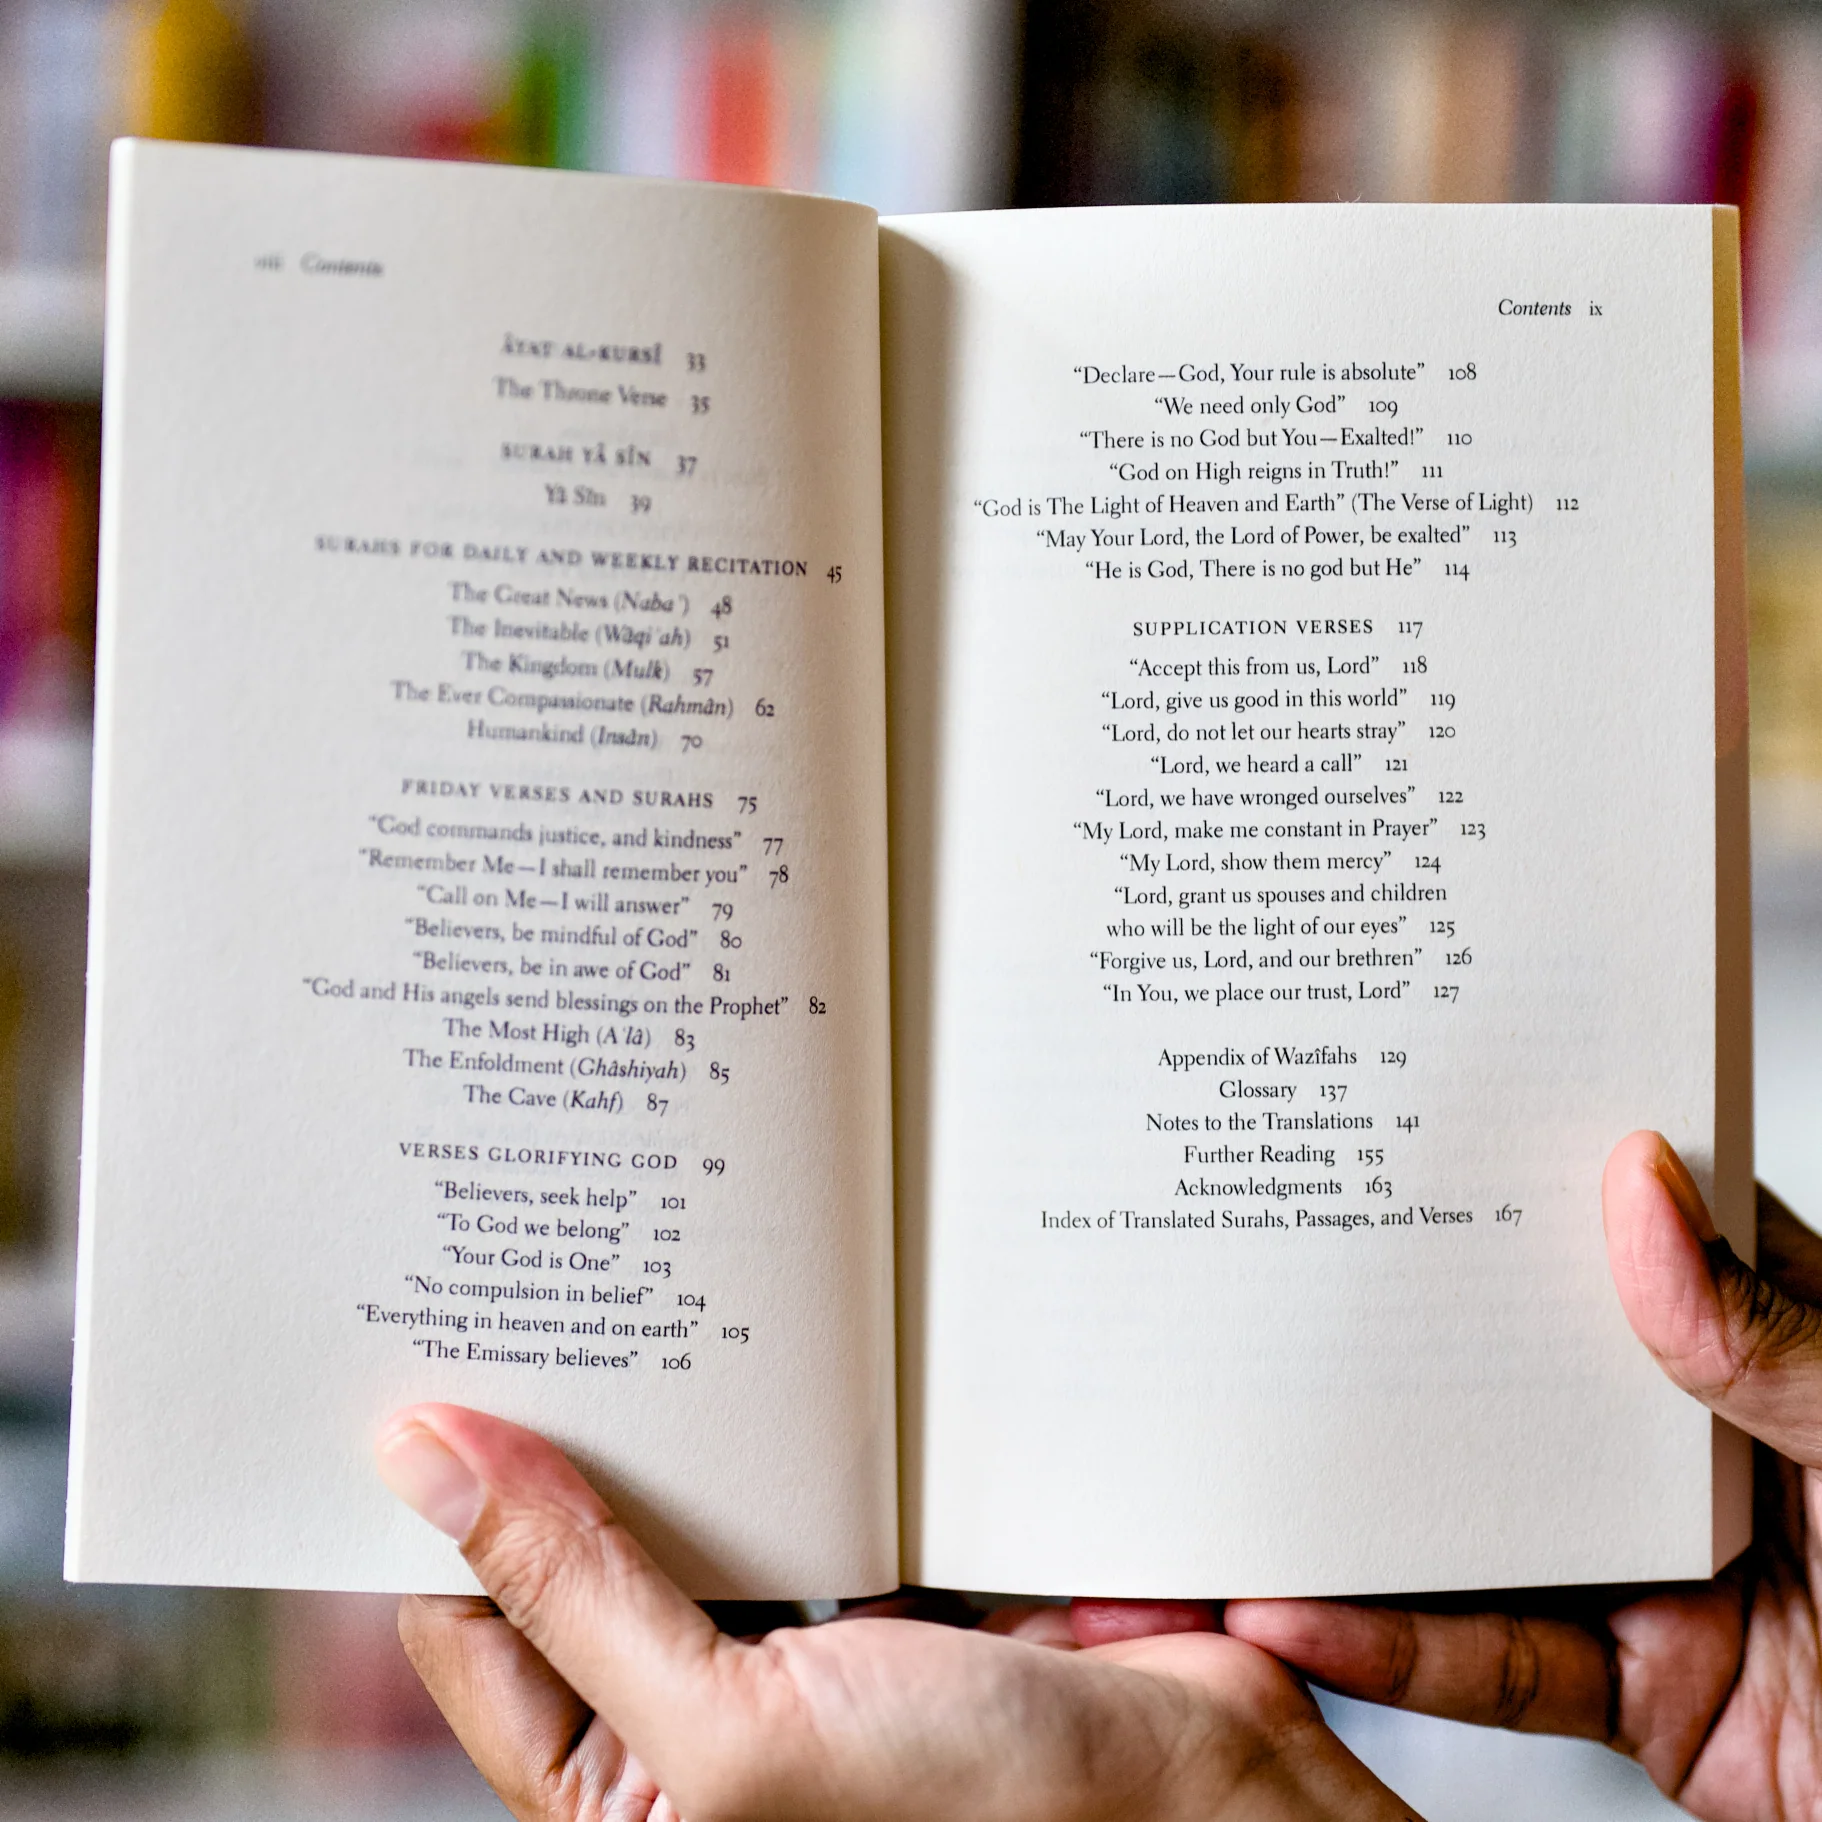 viii Contents
ÂYAT AL-KURSÎ 33
The Throne Verse 35
SURAH YÂ SÎN 37
Yâ Sîn 39
SURAHS FOR DAILY AND WEEKLY RECITATION 45
The Great News (Naba ʾ) 48
The Inevitable (Wâqi ʿah) 51
The Kingdom (Mulk) 57
The Ever Compassionate (Rahmân) 62
Humankind (Insân) 70
FRIDAY VERSES AND SURAHS 75
“God commands justice, and kindness” 77
“Remember Me—I shall remember you” 78
“Call on Me—I will answer” 79
“Believers, be mindful of God” 80
“Believers, be in awe of God” 81
“God and His angels send blessings on the Prophet” 82
The Most High (A ʿlâ) 83
The Enfoldment (Ghâshiyah) 85
The Cave (Kahf) 87
VERSES GLORIFYING GOD 99
“Believers, seek help” 101
“To God we belong” 102
“Your God is One” 103
“No compulsion in belief” 104
“Everything in heaven and on earth” 105
“The Emissary believes” 106
Contents ix
“Declare—God, Your rule is absolute” 108
“We need only God” 109
“There is no God but You—Exalted!” 110
“God on High reigns in Truth!” 111
“God is The Light of Heaven and Earth” (The Verse of Light) 112
“May Your Lord, the Lord of Power, be exalted” 113
“He is God, There is no god but He” 114
SUPPLICATION VERSES 117
“Accept this from us, Lord” 118
“Lord, give us good in this world” 119
“Lord, do not let our hearts stray” 120
“Lord, we heard a call” 121
“Lord, we have wronged ourselves” 122
“My Lord, make me constant in Prayer” 123
“My Lord, show them mercy” 124
“Lord, grant us spouses and children
who will be the light of our eyes” 125
“Forgive us, Lord, and our brethren” 126
“In You, we place our trust, Lord” 127
Appendix of Wazîfahs 129
Glossary 137
Notes to the Translations 141
Further Reading 155
Acknowledgments 163
Index of Translated Surahs, Passages, and Verses 167